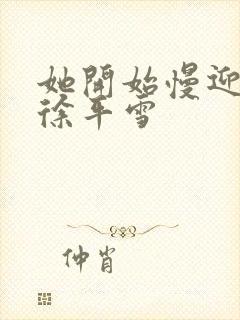 她開始慢迎
徐平雪
仲肖